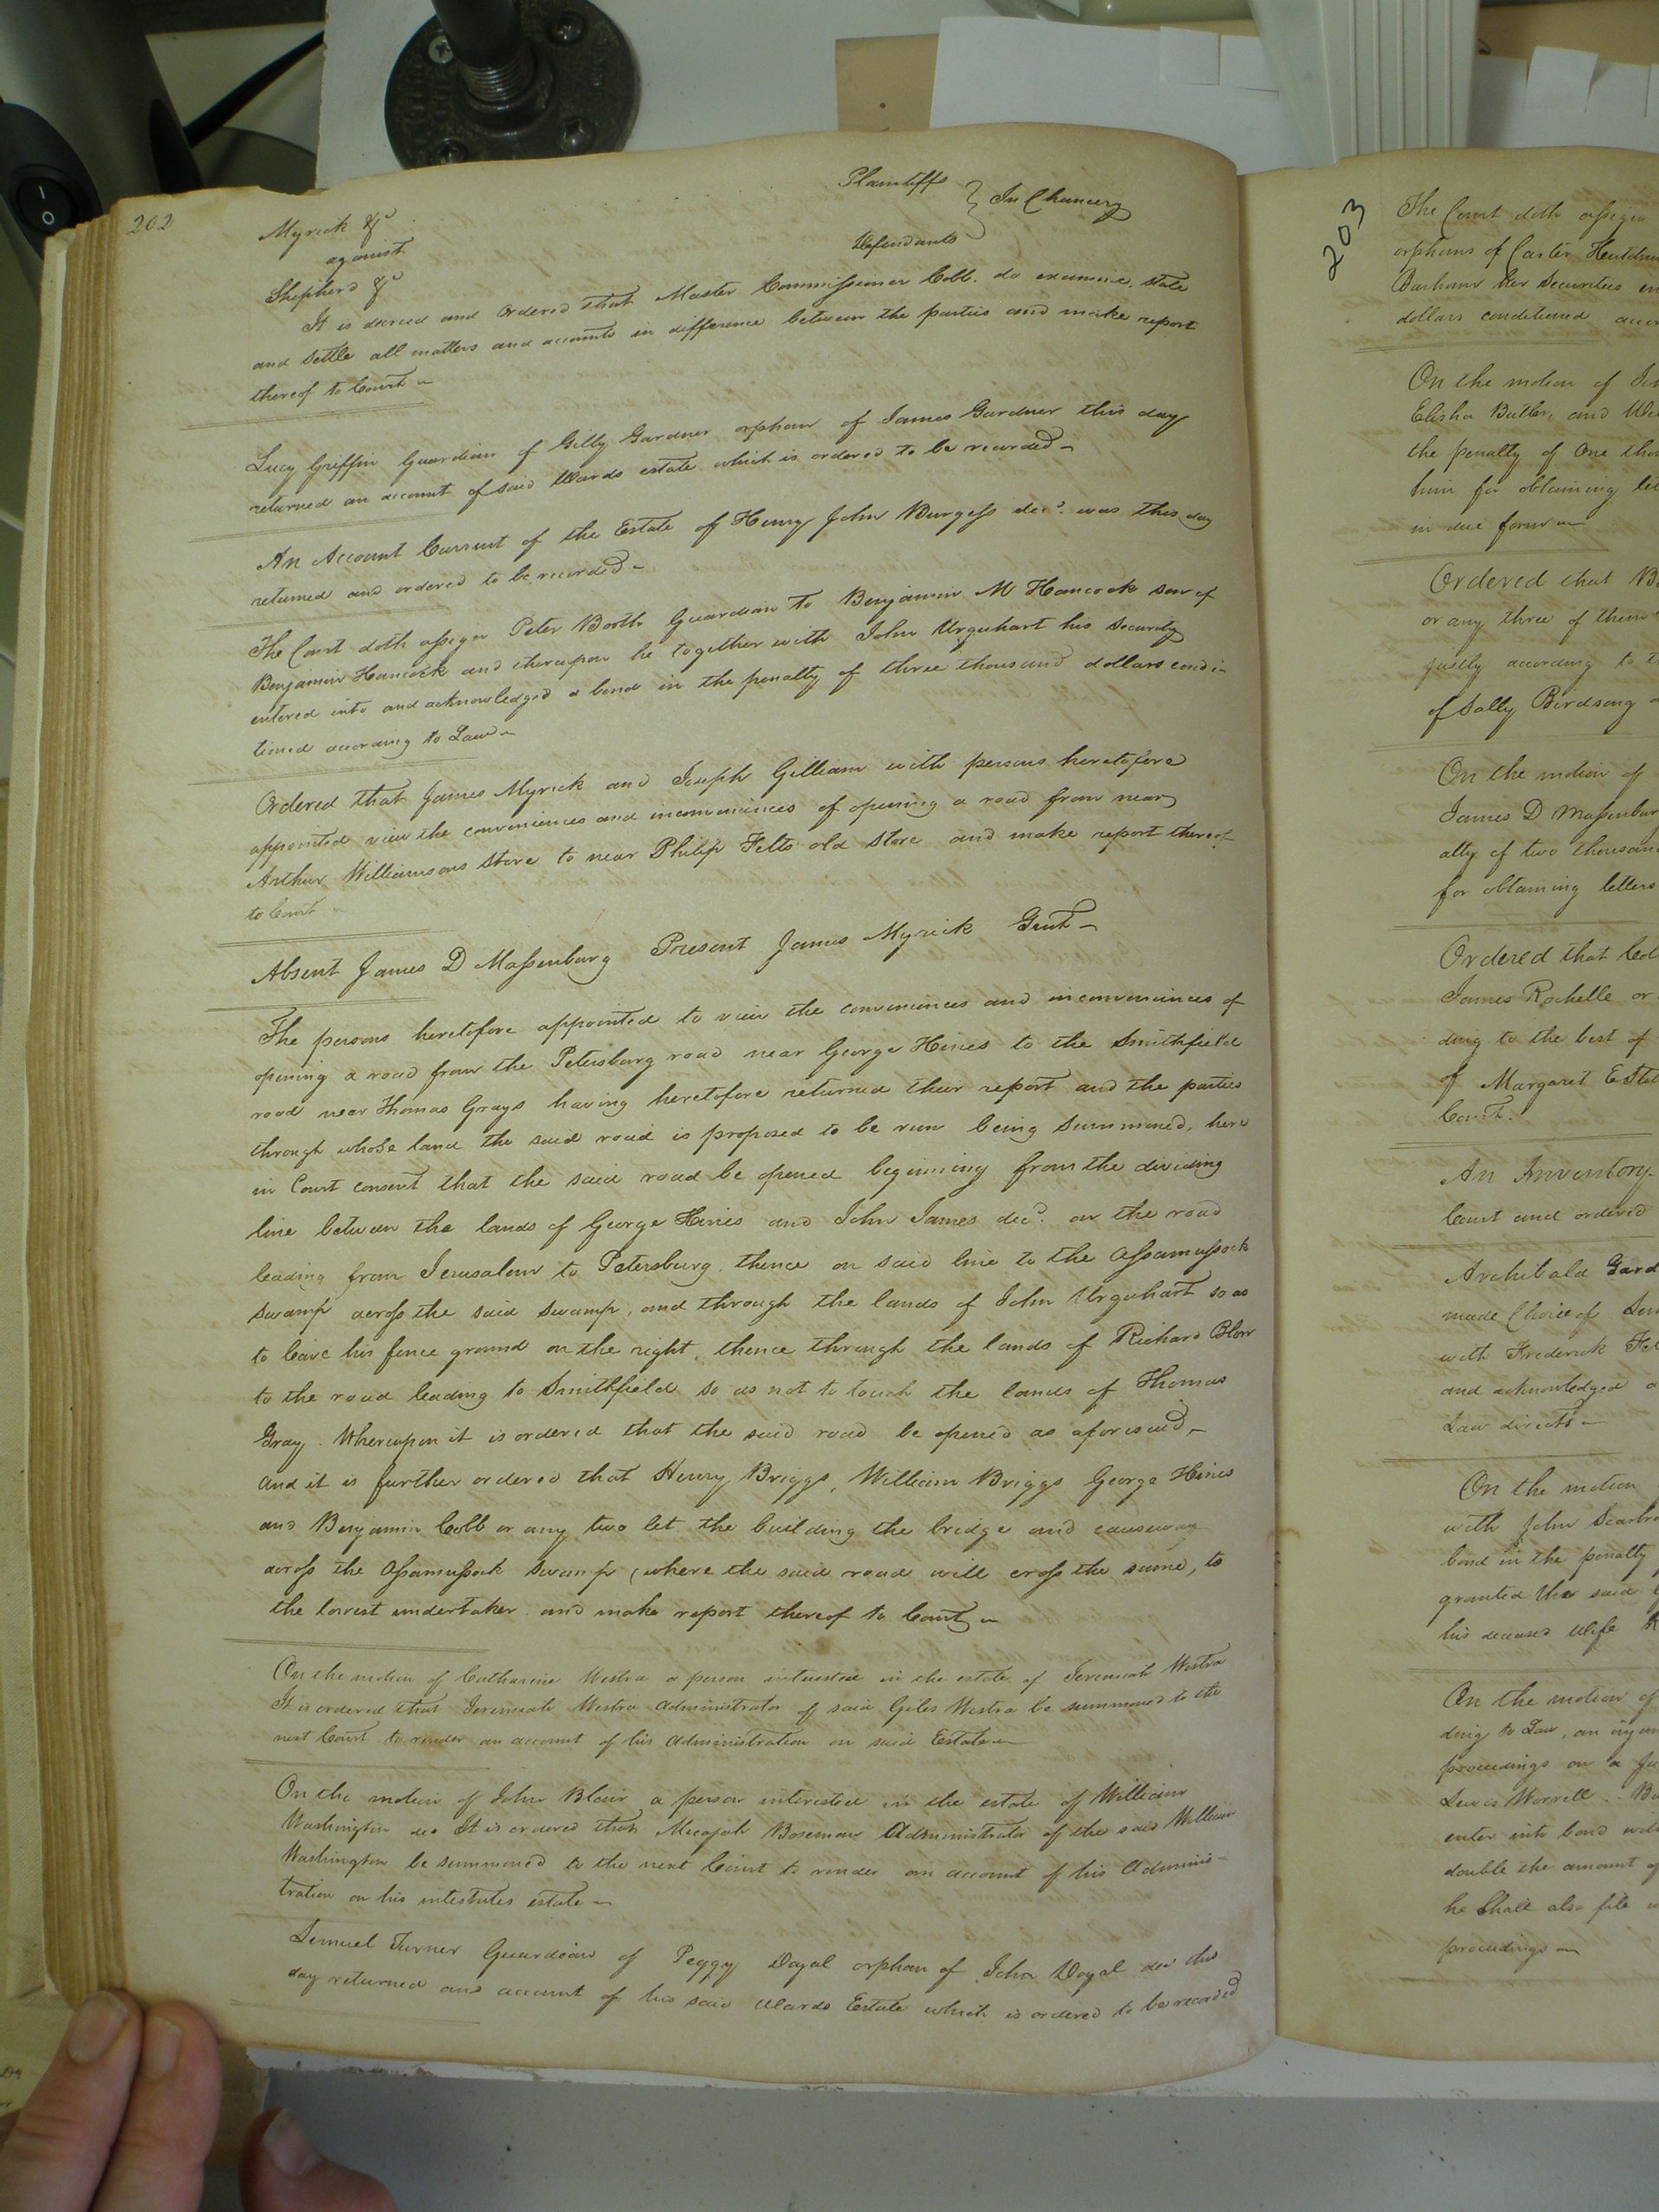 202
Plaintiffs
Myrick &c
against } In Chancery
Shepherd &c
Defendants
It is decreed and Ordered that Master Commissioner Cobb. do examine, state
and settle all matters and accounts in difference between the parties and make report
thereof to Court
Lucy Griffin Guardian of Gilly Gardner orphan of James Gardner this day
returned an account of said Wards estate which is ordered to be recorded
An Account Current of the Estate of Henry John Burgess decd. was this day
returned and ordered to be recorded
The Court doth assign Peter Booth Guardian to Benjamin M Hancock son of
Benjamin Hancock and thereupon he together with John Urquhart his security
entered into and acknowledged a bond in the penalty of three thousand dollars condi-
tioned according to Law
Ordered that James Myrick and Joseph Gilliam with persons heretofore
appointed view the conveniences and inconveniences of opening a road from near
Arthur Williamsons Store to near Philip Felts old store and make report thereof
to Court
Absent James D Massenburg Present James Myrick Gent
The persons heretofore appointed to view the conveniences and inconveniences of
opening a road from the Petersburg road near George Hines to the Smithfield
road near Thomas Grays having heretofore returned their report and the parties
through whose land the said road is proposed to be run being summoned, here
in Court consent that the said road be opened beginning from the dividing
line between the lands of George Hines and John James decd. on the road
leading from Jerusalem to Petersburg. thence on said line to the Assamussock
swamp across the said swamp, and through the lands of John Urquhart so as
to leave his fence ground on the right, thence through the lands of Richard Blow
to the road leading to Smithfield so as not to touch the lands of Thomas
Gray. Whereupon it is ordered that the said road be opened as aforesaid,
and it is further ordered that Henry Briggs, William Briggs George Hines
and Benjamin Cobb or any two let the building the bridge and causeway
across the Assamussock swamp (where the said road will cross the same, to
the lowest undertaker and make report thereof to Court
On the motion of Catharine Westra a person interested in the estate of Jeremiah Westra
It is ordered that Jeremiah Westra Administrator of said Giles Westra be summoned to the
next Court to render an account of his Administration on said Estate
On the motion of John Blair a person interested in the estate of William
Washington dec It is ordered that Micajah Boseman Administrator of the said William
Washington be summoned to the next Court to render an account of his Adminis-
tration on his intestates estate
Lemuel Turner Guardian of Peggy Doyal orphan of John Doyal dec this
day returned and account of his said Wards Estate which is ordered to be recorded
203
The Court doth assign
orphans of Carter
Barham her Securities
dollars conditioned
On the motion of
Elisha Butler, and
the penalty of One
him for obtaining
in due form
Ordered that
or any three of them
justly according to
of Sally Birdsong
On the motion of
James D
of two
for obtaining letters
Ordered that
James Rochelle or
ding to the best of
of Margaret
Court.
An Inventory
Court and ordered
Archibald
made Choice of
with Frederick
and acknowledged a
Law directs
On the motion
with John
bond in the penalty
granted the said
his deceased wife
On the motion of
ding to Law, an
proceedings on a
Lewis Worrell.
enter into bond
double the amount of
he shall also file
proceedings